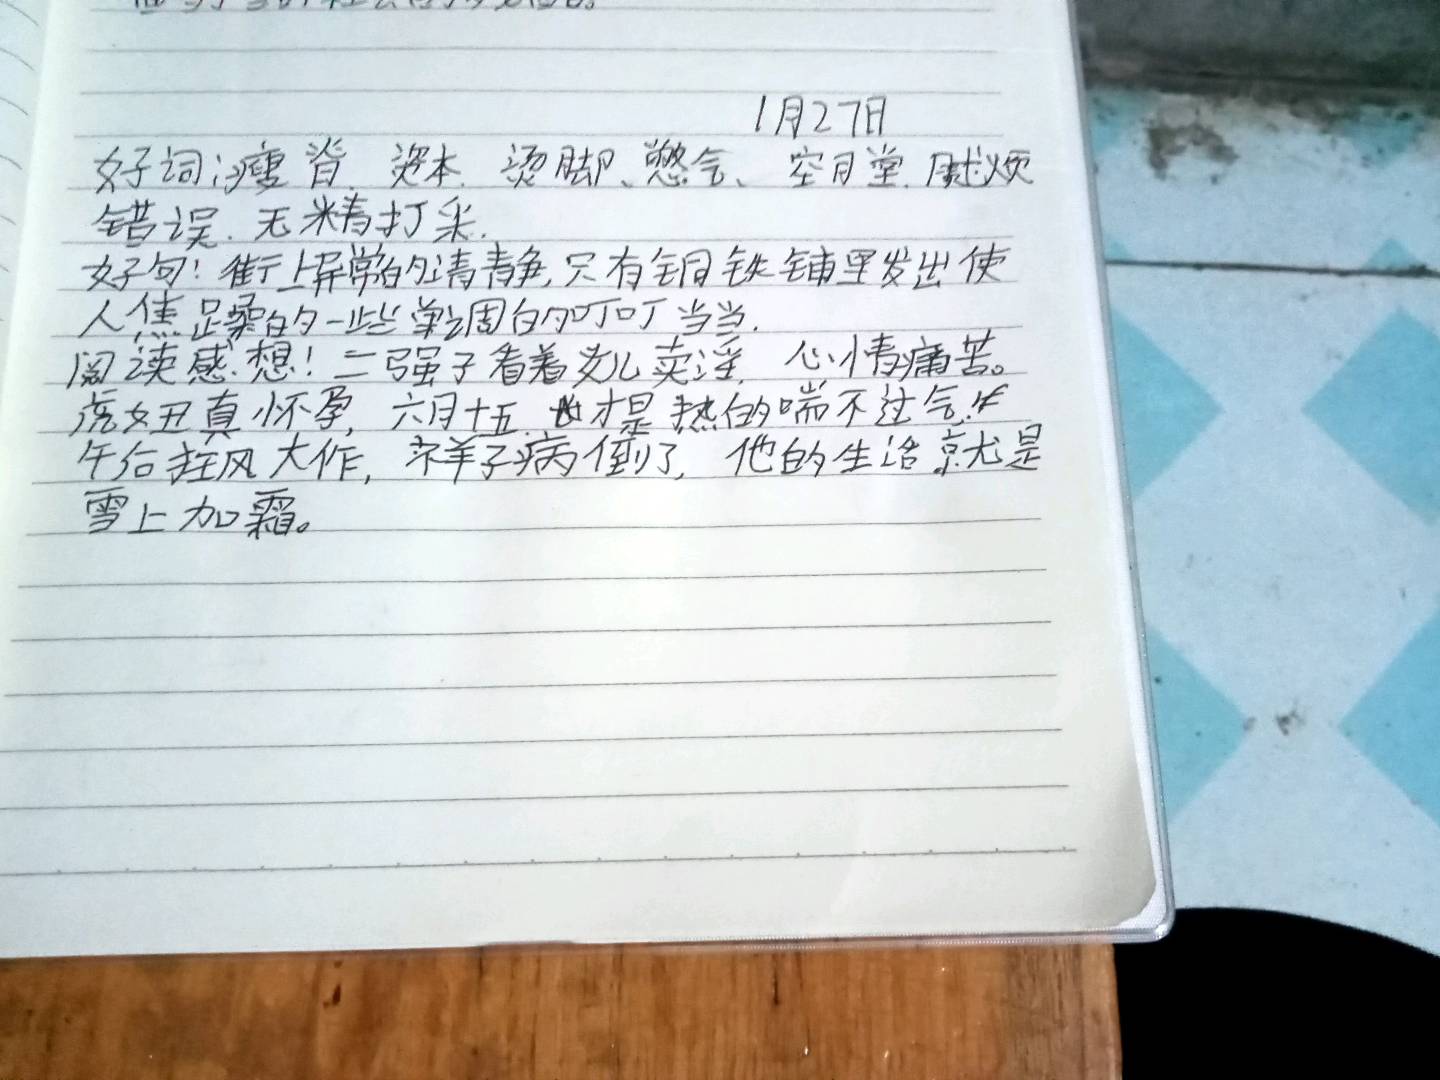 1月27日
好词:瘦脊、资本、烫脚、憋气、空月堂、腻烦
错误、无精打采.
好句!街上异常的清静,只有铜铁铺里发出使
人焦躁的一些单调的叮叮当当.
阅读感想!二强子看着女儿卖淫,心情痛苦。
虎妞丑真怀孕,六月十五.才是热的喘不过气.
午后狂风大作,祥子病倒了,他的生活就是
雪上加霜。